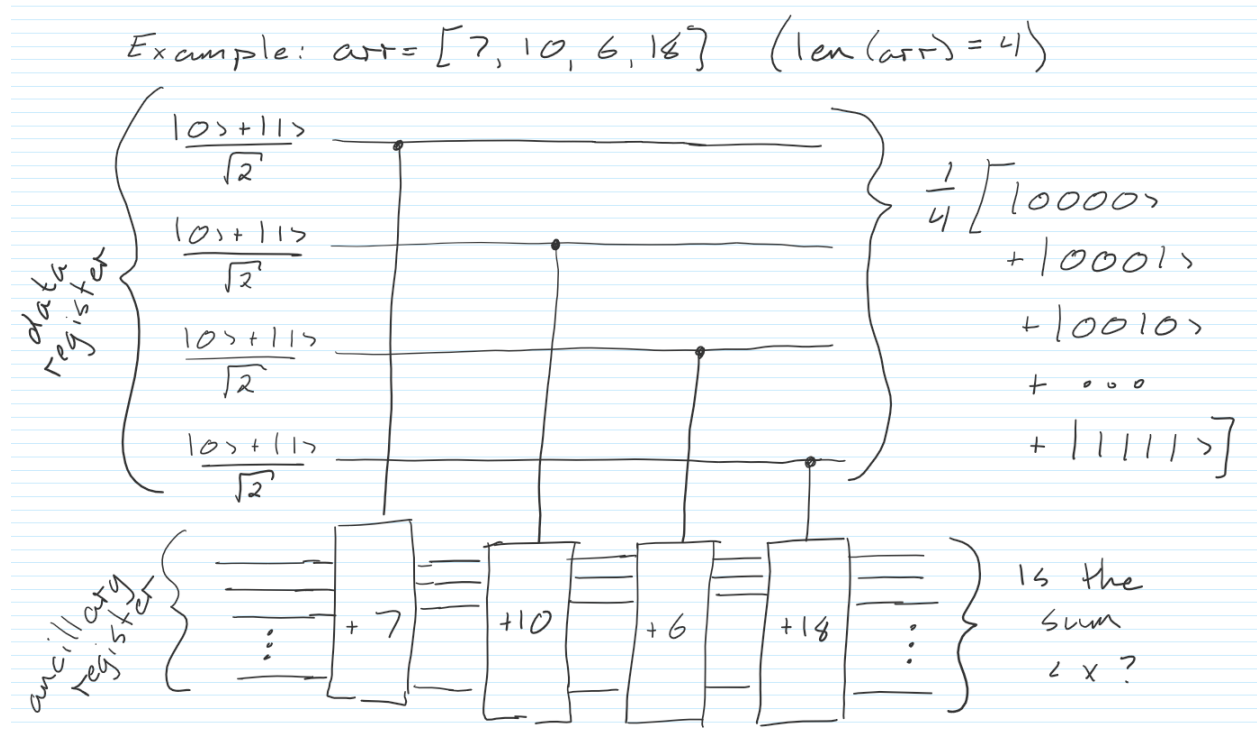 Example: arr = [7, 10, 6, 18] (len(arr) = 4)
data register
|0> + |1>
√2
|0> + |1>
√2
|0> + |1>
√2
|0> + |1>
√2
1/4 [ |0000>
+ |0001>
+ |0010>
+ ...
+ |1111> ]
ancillary register
+ 7
+10
+6
+18
Is the
sum
< x ?